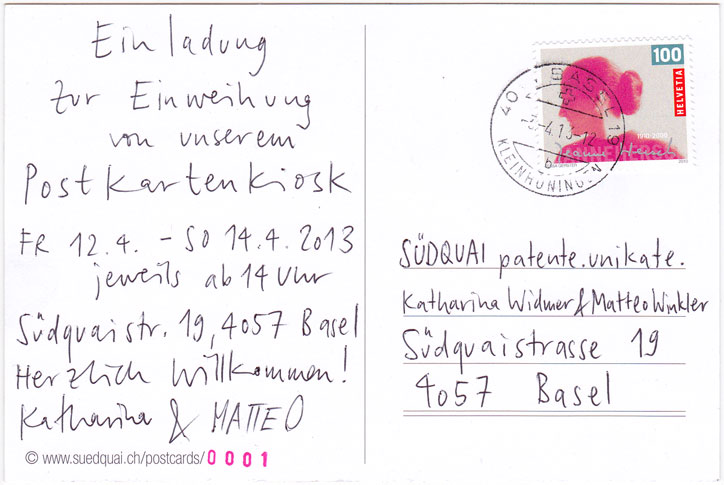 Einladung
zur Einweihung
von unserem
Postkartenkiosk
FR 12.4. - SO 14.4.2013
jeweils ab 14 Uhr
Südquaistr. 19, 4057 Basel
Herzlich Willkommen!
Katharina & MATTEO
© www.suedquai.ch/postcards/0001
100
HELVETIA
1910-2000
Jeanne Hersch
BASEL 19
KLEINHÜNINGEN
SÜDQUAI patente.unikate.
Katharina Widmer & Matteo Winkler
Südquaistrasse 19
4057 Basel